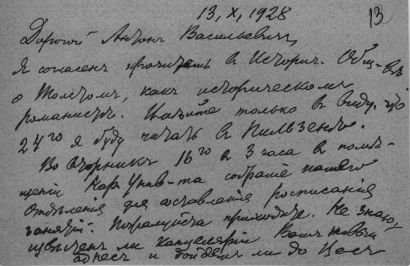 13, X, 1928
13
Дорогой Антон Васильевич,
Я согласен прочитать в Историч. Общ-вѣ
о Толстом, как историческом
романистѣ. Имейте только в виду, что
24го я буду читать в Пильзенѣ.
Во вторник 16го в 3 часа в помѣ-
щении Кар. Унив-та собрание нашего
отдѣления для составления росписания
занятий. Пожалуйста приходите. Не знаю,
извѣщен ли канцелярией Ваш новый
адрес и дойдет ли до Вас